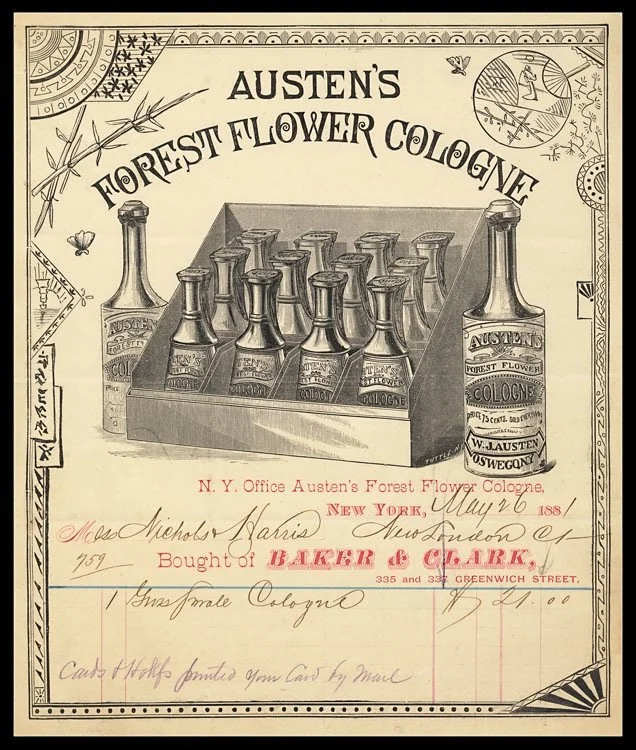 AUSTEN'S
FOREST FLOWER COLOGNE
AUSTEN'S
FOREST FLOWER
COLOGNE
PRICE 75 CENTS. SOLD EVERYWHERE
W.J.AUSTEN
OSWEGO.N.Y.
TUTTLE.N.Y.
N. Y. Office Austen's Forest Flower Cologne,
NEW YORK, May 26 1881
Mess Nichols & Harris New London Ct
759 Bought of BAKER & CLARK,
335 and 337 GREENWICH STREET,
1 Gross small Cologne $ 21.00
Cards & printed your Card by Mail